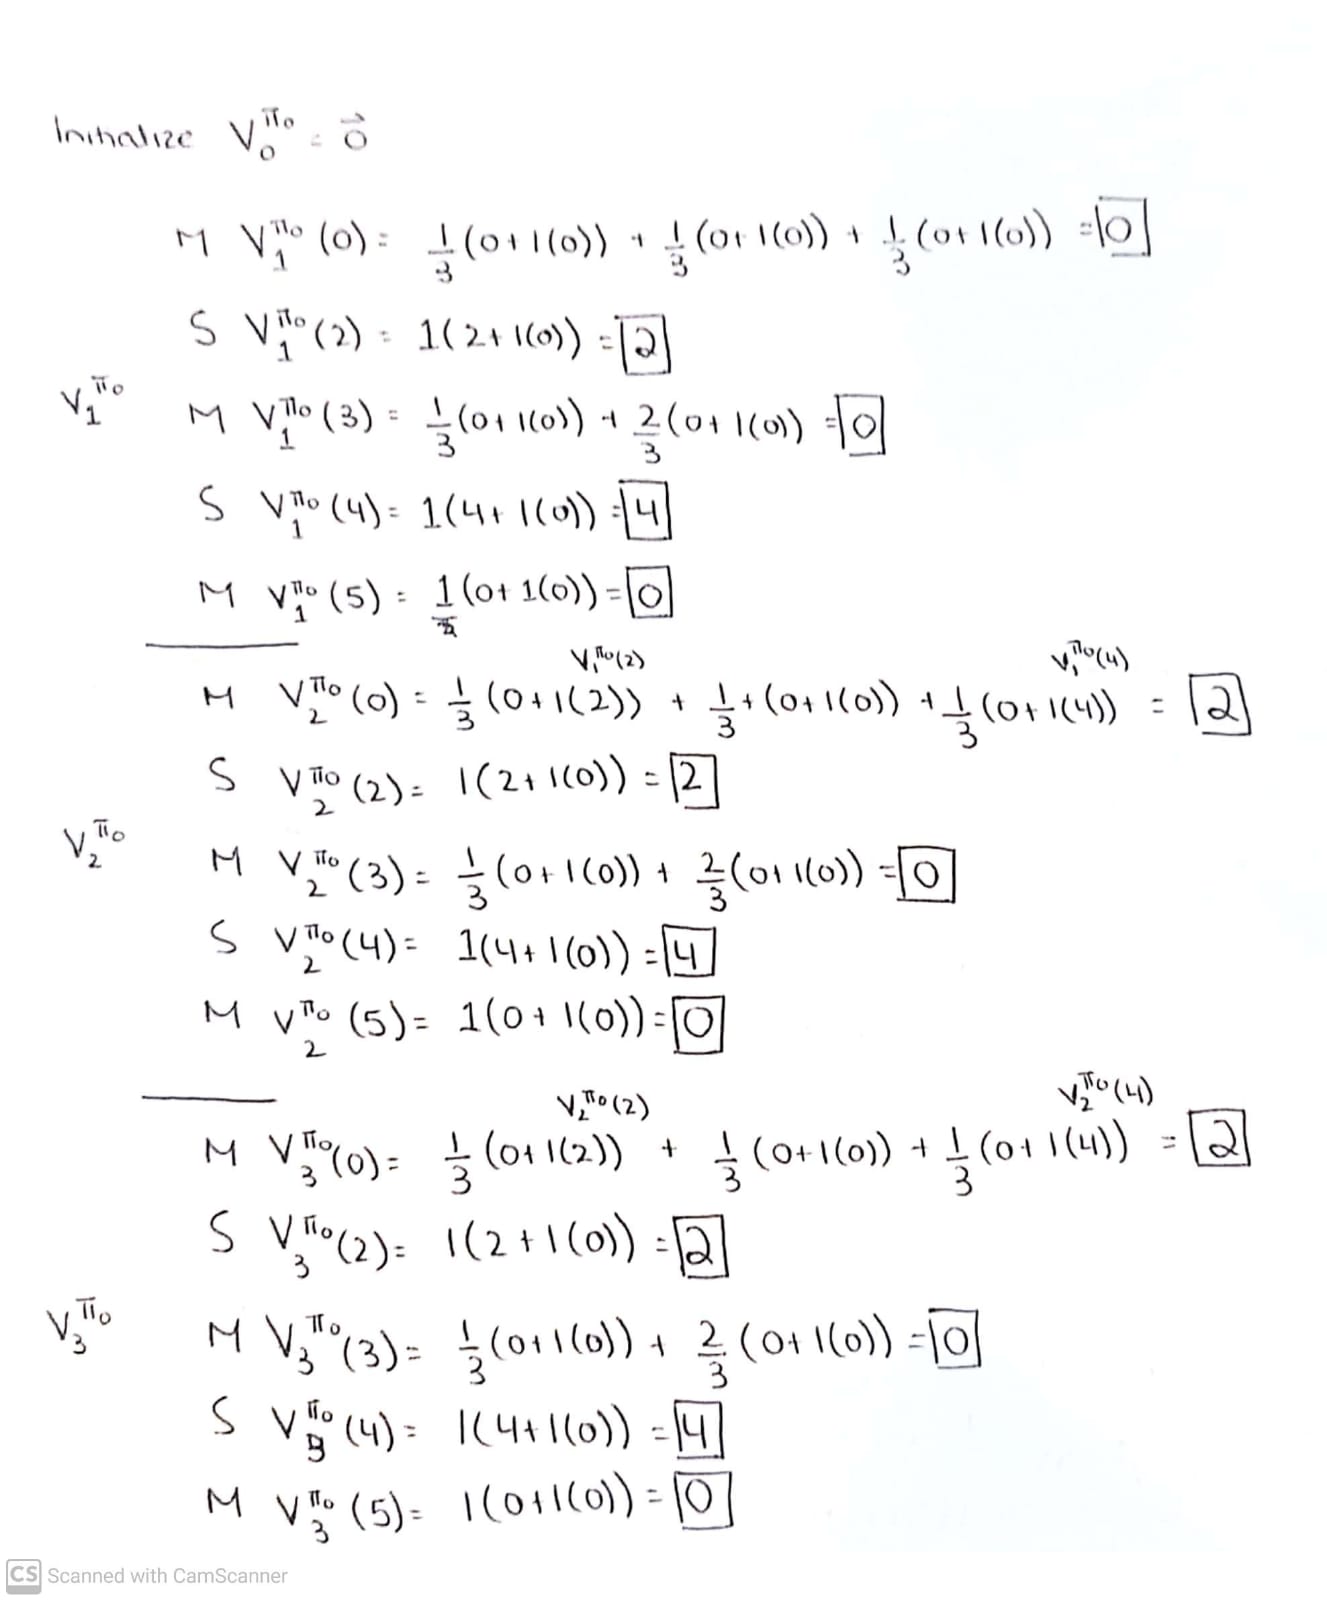 Initialize V₀^π₀ = 0⃗
M V₁^π₀ (0) = 1/3 (0+1(0)) + 1/3 (0+1(0)) + 1/3 (0+1(0)) = 0
S V₁^π₀ (2) = 1(2+1(0)) = 2
V₁^π₀ M V₁^π₀ (3) = 1/3 (0+1(0)) + 2/3 (0+1(0)) = 0
S V₁^π₀ (4) = 1(4+1(0)) = 4
M V₁^π₀ (5) = 1 (0+1(0)) = 0
V₁^π₀(2) V₁^π₀(4)
M V₂^π₀ (0) = 1/3 (0+1(2)) + 1/3 + (0+1(0)) + 1/3 (0+1(4)) = 2
S V₂^π₀ (2) = 1(2+1(0)) = 2
V₂^π₀ M V₂^π₀ (3) = 1/3 (0+1(0)) + 2/3 (0+1(0)) = 0
S V₂^π₀ (4) = 1(4+1(0)) = 4
M V₂^π₀ (5) = 1(0+1(0)) = 0
V₂^π₀(2) V₂^π₀(4)
M V₃^π₀ (0) = 1/3 (0+1(2)) + 1/3 (0+1(0)) + 1/3 (0+1(4)) = 2
S V₃^π₀ (2) = 1(2+1(0)) = 2
V₃^π₀ M V₃^π₀ (3) = 1/3 (0+1(0)) + 2/3 (0+1(0)) = 0
S V₃^π₀ (4) = 1(4+1(0)) = 4
M V₃^π₀ (5) = 1(0+1(0)) = 0
CS Scanned with CamScanner